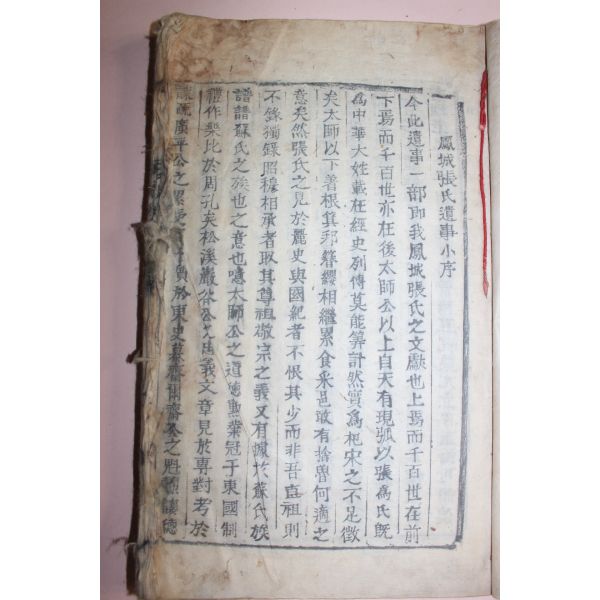 鳳城張氏遺事小序
今此遺事一部即我鳳城張氏之文獻也上焉而千百世在前
下焉而千百世亦在後太師公以上自天有現弧以張爲氏旣
爲中華大姓載在經史列傳莫能算計然實爲杞宋之不足徵
矣太師以下着根箕邦簪纓相繼累食采邑敢有捨魯何適之
意矣然張氏之見於麗史與國紀者不恨其少而非吾直祖則
不錄獨錄昭穆相承者取其尊祖敬宗之義又有據於蘇氏族
譜譜蘇氏之族也之意也噫太師公之道德勳業冠于東國制
禮作樂比於周孔矣松溪巖谷公之忠義文章見於專對考於
廣平公之累 於東史 齋 齋公之魁 德